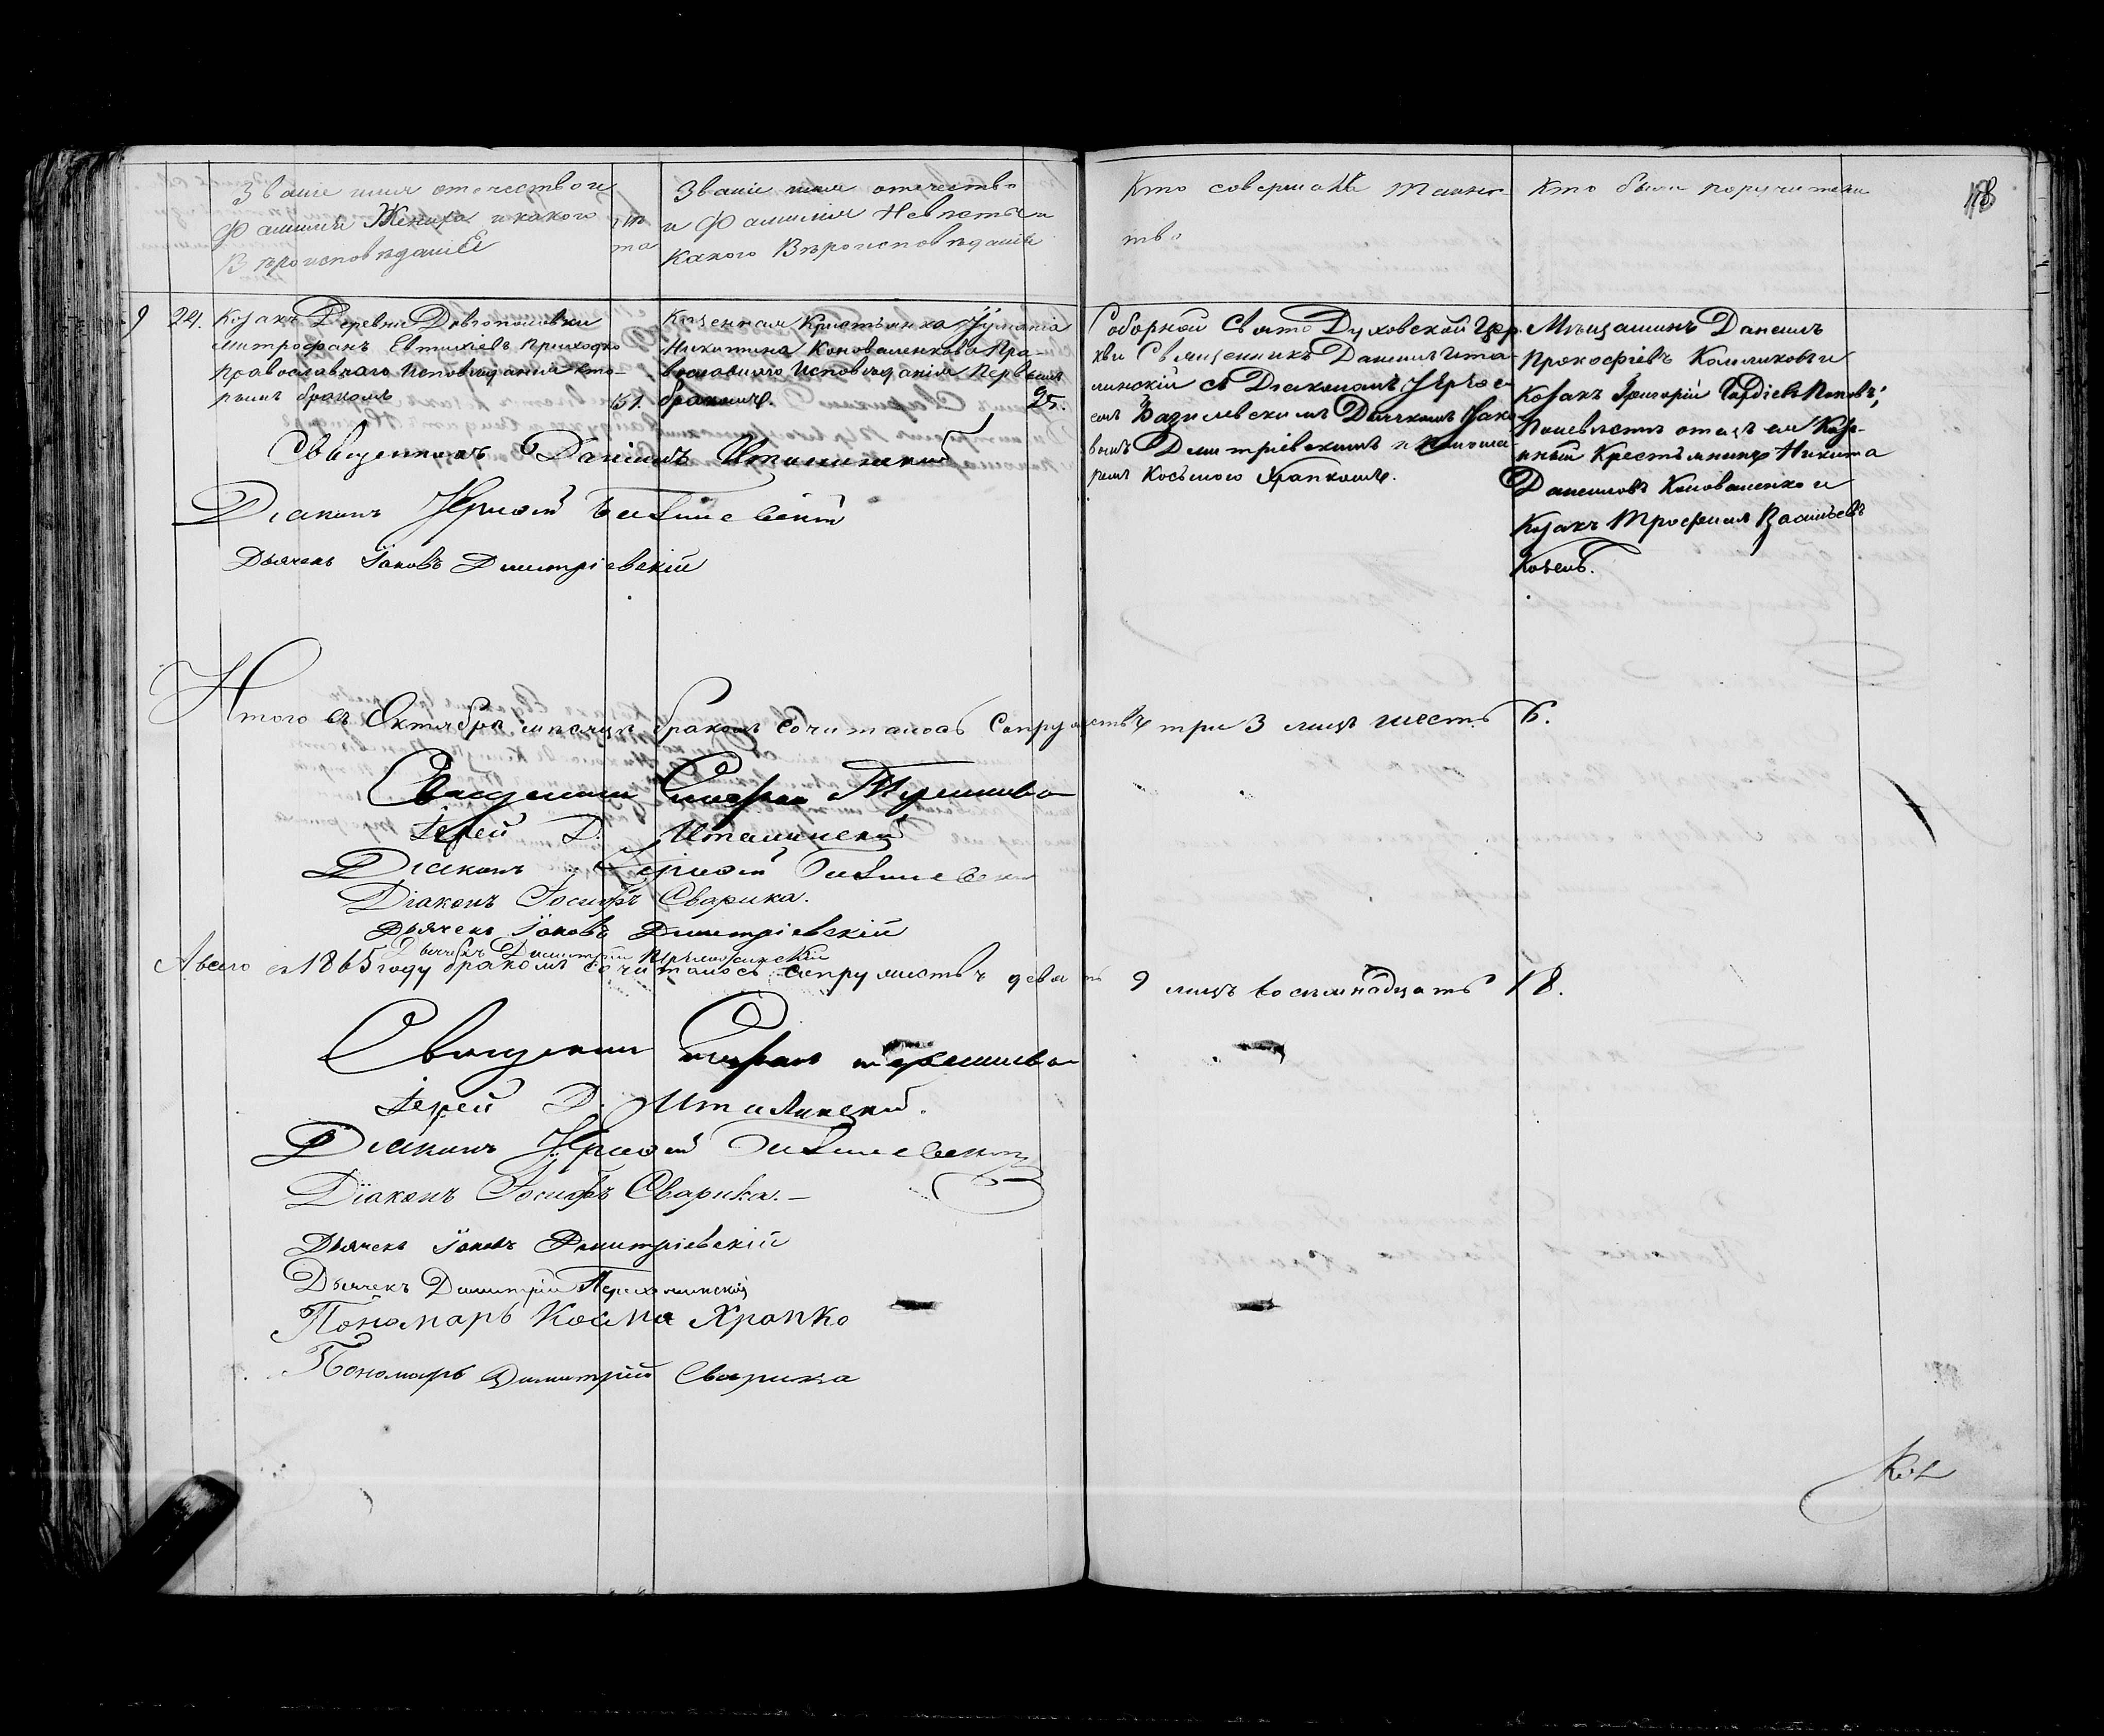 Званіе имя отечество и
Фамилія Жениха и какого
Вѣроисповѣданіе
лѣ
та
Званіе имя отечество
и Фамилія Невесты и
какого Вѣроисповѣданіе
Кто совершалъ Таинс-
тво
Кто были поручители
9 24. Козакъ Деревни Довгополовки
Митрофанъ Евтихіевъ Приходко
Православнаго Исповѣданія вто-
рымъ бракомъ 51.
Казенная Крестьянка
Никитина Коноваленкова Пра-
вославнаго Исповѣданія Первымъ
бракомъ. 25.
Соборной Свято Духовской Цер-
кви Священникъ Даніилъ Ита-
линскій съ Діакономъ
Базилевскимъ Дьячкомъ Яко-
вымъ Димитріевскимъ и Понома-
ремъ Косьмою Храпкомъ.
Мѣщанинъ Даніилъ
Прокофіевъ и
Козакъ Григорій Гордіевъ Поповъ;
По невѣстѣ отецъ ея Казе-
нный Крестьянинъ Никита
Даниловъ Коноваленко и
Козакъ Трофимъ Васильевъ
Козель.
Священникъ Даніилъ Италинскій
Діаконъ Базилевскій
Дьячекъ Іаковъ Димитріевскій
Итого въ Октябрѣ мѣсяцѣ бракомъ сочиталось Супружествъ три 3 лицъ шесть 6.
Священникъ
Іерей Д. Италинскій
Діаконъ Базилевскій
Діаконъ Іосифъ Сварика.
Дьячекъ Іаковъ Димитріевскій
Дьячекъ Димитрій
А всего въ 1865 году бракомъ сочиталось супружествъ девять 9 лицъ восемнадцать 18.
Священникъ
Іерей Д. Италинскій.
Діаконъ Базилевскій
Діаконъ Іосифъ Сварика.
Дьячекъ Іаковъ Димитріевскій
Дьячекъ Димитрій
Пономарь Косма Храпко
Пономарь Димитрій Сварика